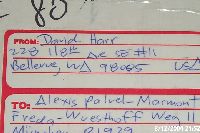 80
FROM: David Harr
228 118th Ave SE #11
Bellevue, WA 98005 USA
TO: Alexis Palvel-Marmont
Freda-Wuesthoff Weg 11
München 81929
8/12/2001 21:52